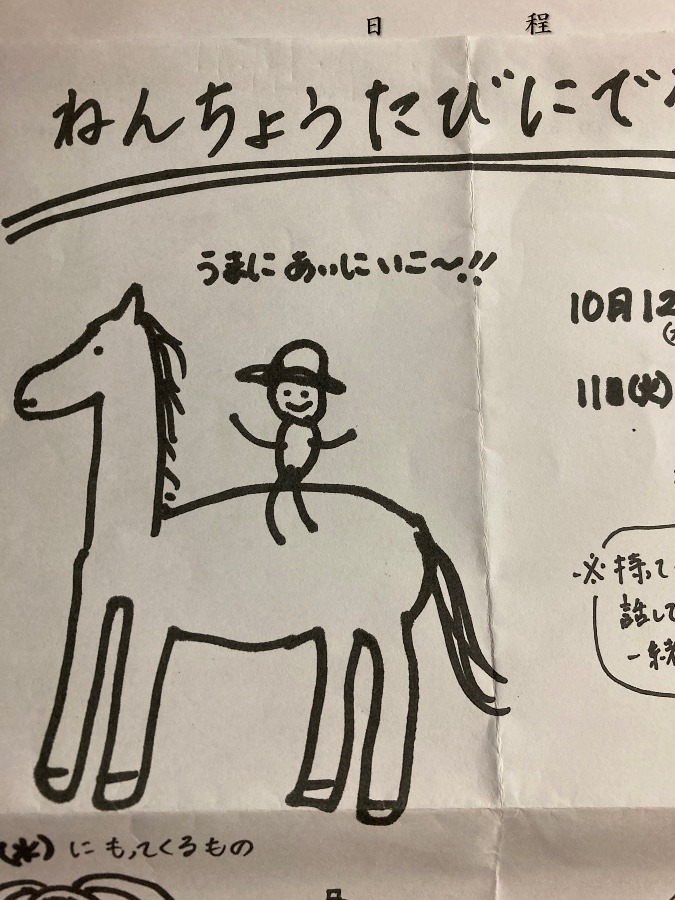 日 程
ねんちょうたびにで

うまに あいにいこ〜!!
10月12
11日(火)
※持って
話して
一緒
(水)にもってくるもの